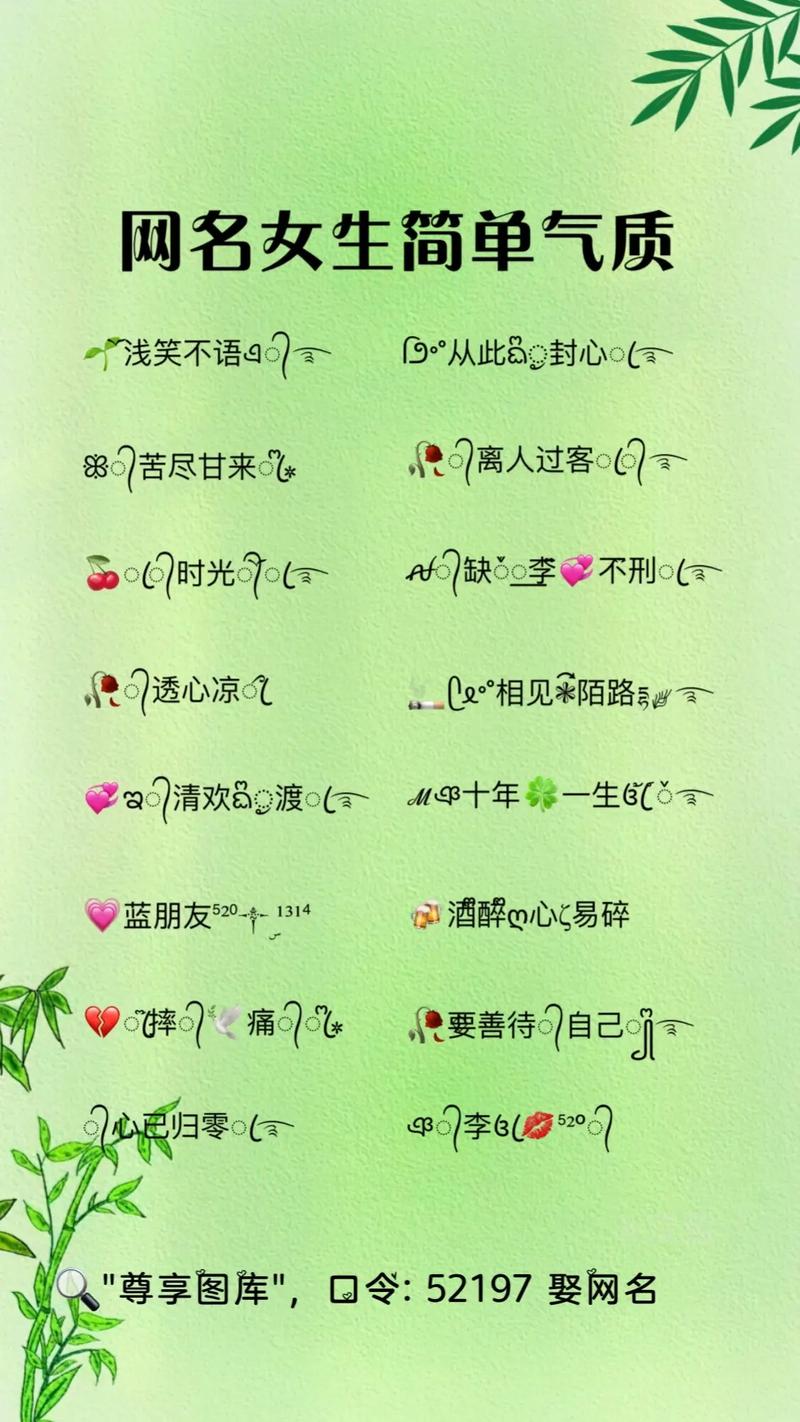 网名女生简单气质
🌱浅笑不语એ᭄࿐ ᭙ᵒᵒ从此ඩိૢ封心ꦿ࿐
ꕥ᭄苦尽甘来ꪆ⁎ 🥀᭄离人过客ꦿ᭄࿐
🍒ꦿ᭄时光᭄ꦿ࿐ ꫝ᭄缺李💞不刑ꦿ࿐
🥀᭄透心凉ꪆ 🚬ᵒᵒ相见陌路࿐
💞ఇ᭄清欢ඩિૢ渡ꦿ࿐ ℳঞ十年🍀一生ꦿ࿐
💗蓝朋友⁵²⁰ ¹³¹⁴ 🍻酒醉ღ心ζ易碎
💔摔᭄🕊️痛᭄ꪆ⁎ 🥀要善待᭄自己࿐
᭄心已归零ꦿ࿐ ঞ᭄李ꦿ💋⁵²⁰᭄
🔍"尊享图库"，口令：52197 娶网名